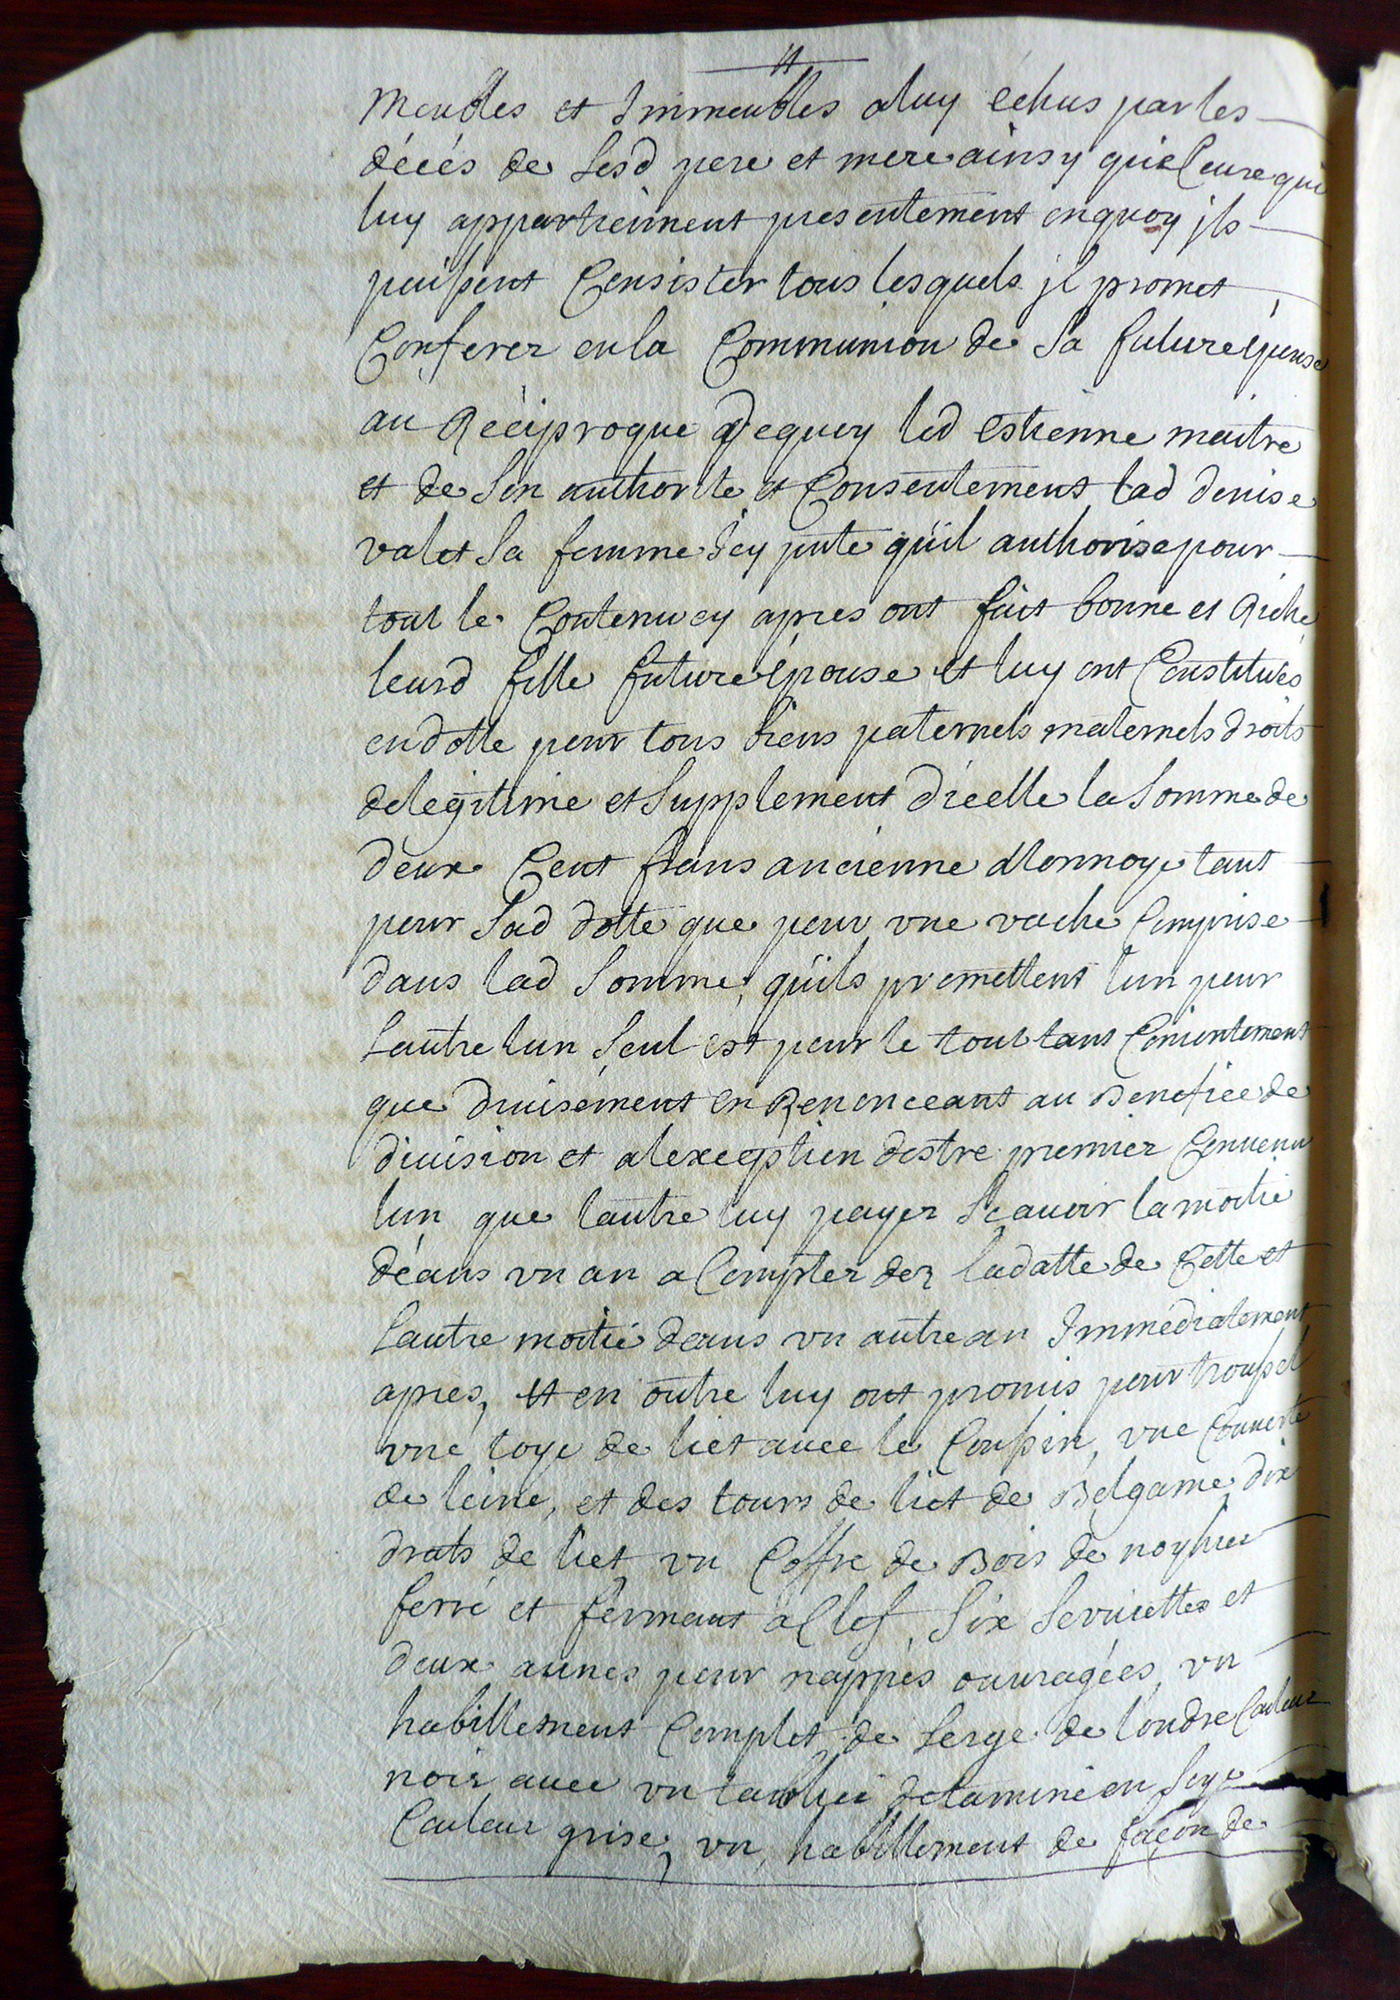 Meubles et Immeubles a luy échus par les
décés de sesd pere et mere ainsy que ceux qui
luy appartiennent presentement en quoy jls
puissent Consister tous lesquels jl promet
Conferer en la Communion de sa future épouse
au Réciproque dequoy led Estienne maitre
et de son authorité et Consentement lad denise
valet sa femme icy pnte qu'il authorise pour
tout le Contenu cy apres ont fait bonne et Riche
leurd fille future épouse et luy ont Constitués
en dotte pour tous biens paternels maternels droits
de legitime et supplement d'icelle la somme de
deux Cent frans ancienne Monnoye tant
pour sad dotte que pour vne vache Comprise
dans lad somme, qu'ils promettent lun pour
Lautre lun seul est pour le tout tant Conjointement
que diuisément en Renonceant au Benefice de
diuision et alexception destre premier Conuenu
lun que lautre luy payer scauoir la moitié
déans vn an a Compter dez la datte de Cette et
Lautre moitié deans vn autre an Immédiatement
apres, Et en outre luy ont promis pour troussel
vne toye de lict auec le Coussin, vne Couuerte
de leine, et des tours de lict de Belgame, dix
drats de lict vn Coffre de Bois de noyhier
ferré et fermant a Clef, six seruiettes et
deux aunes pour nappes ouuragées, vn
habillement Complet de serge de londre Couleur
noir auec vn tablier detamine en soye
Couleur grise, vn habillement de façon de